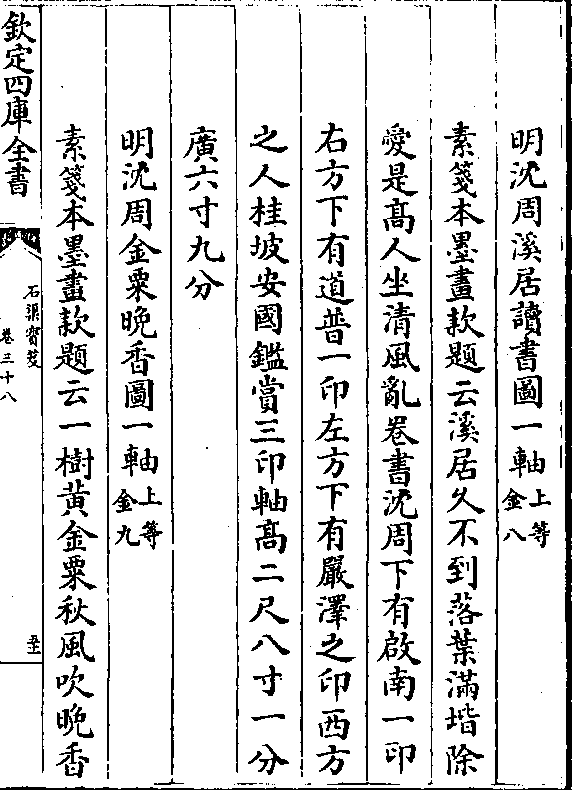 明沈周溪居讀書圖一軸上等
金八
素箋本墨畫款題云溪居久不到落葉滿堦除
愛是高人坐清風亂卷書沈周下有啟南一印
右方下有道普一印左方下有嚴澤之印西方
之人桂坡安國鑑賞三印軸高二尺八寸一分
廣六寸九分
明沈周金粟晚香圖一軸上等
金九
素箋本墨畫款題云一樹黃金粟秋風吹晚香
欽定四庫全書
石渠寳笈
卷三十八